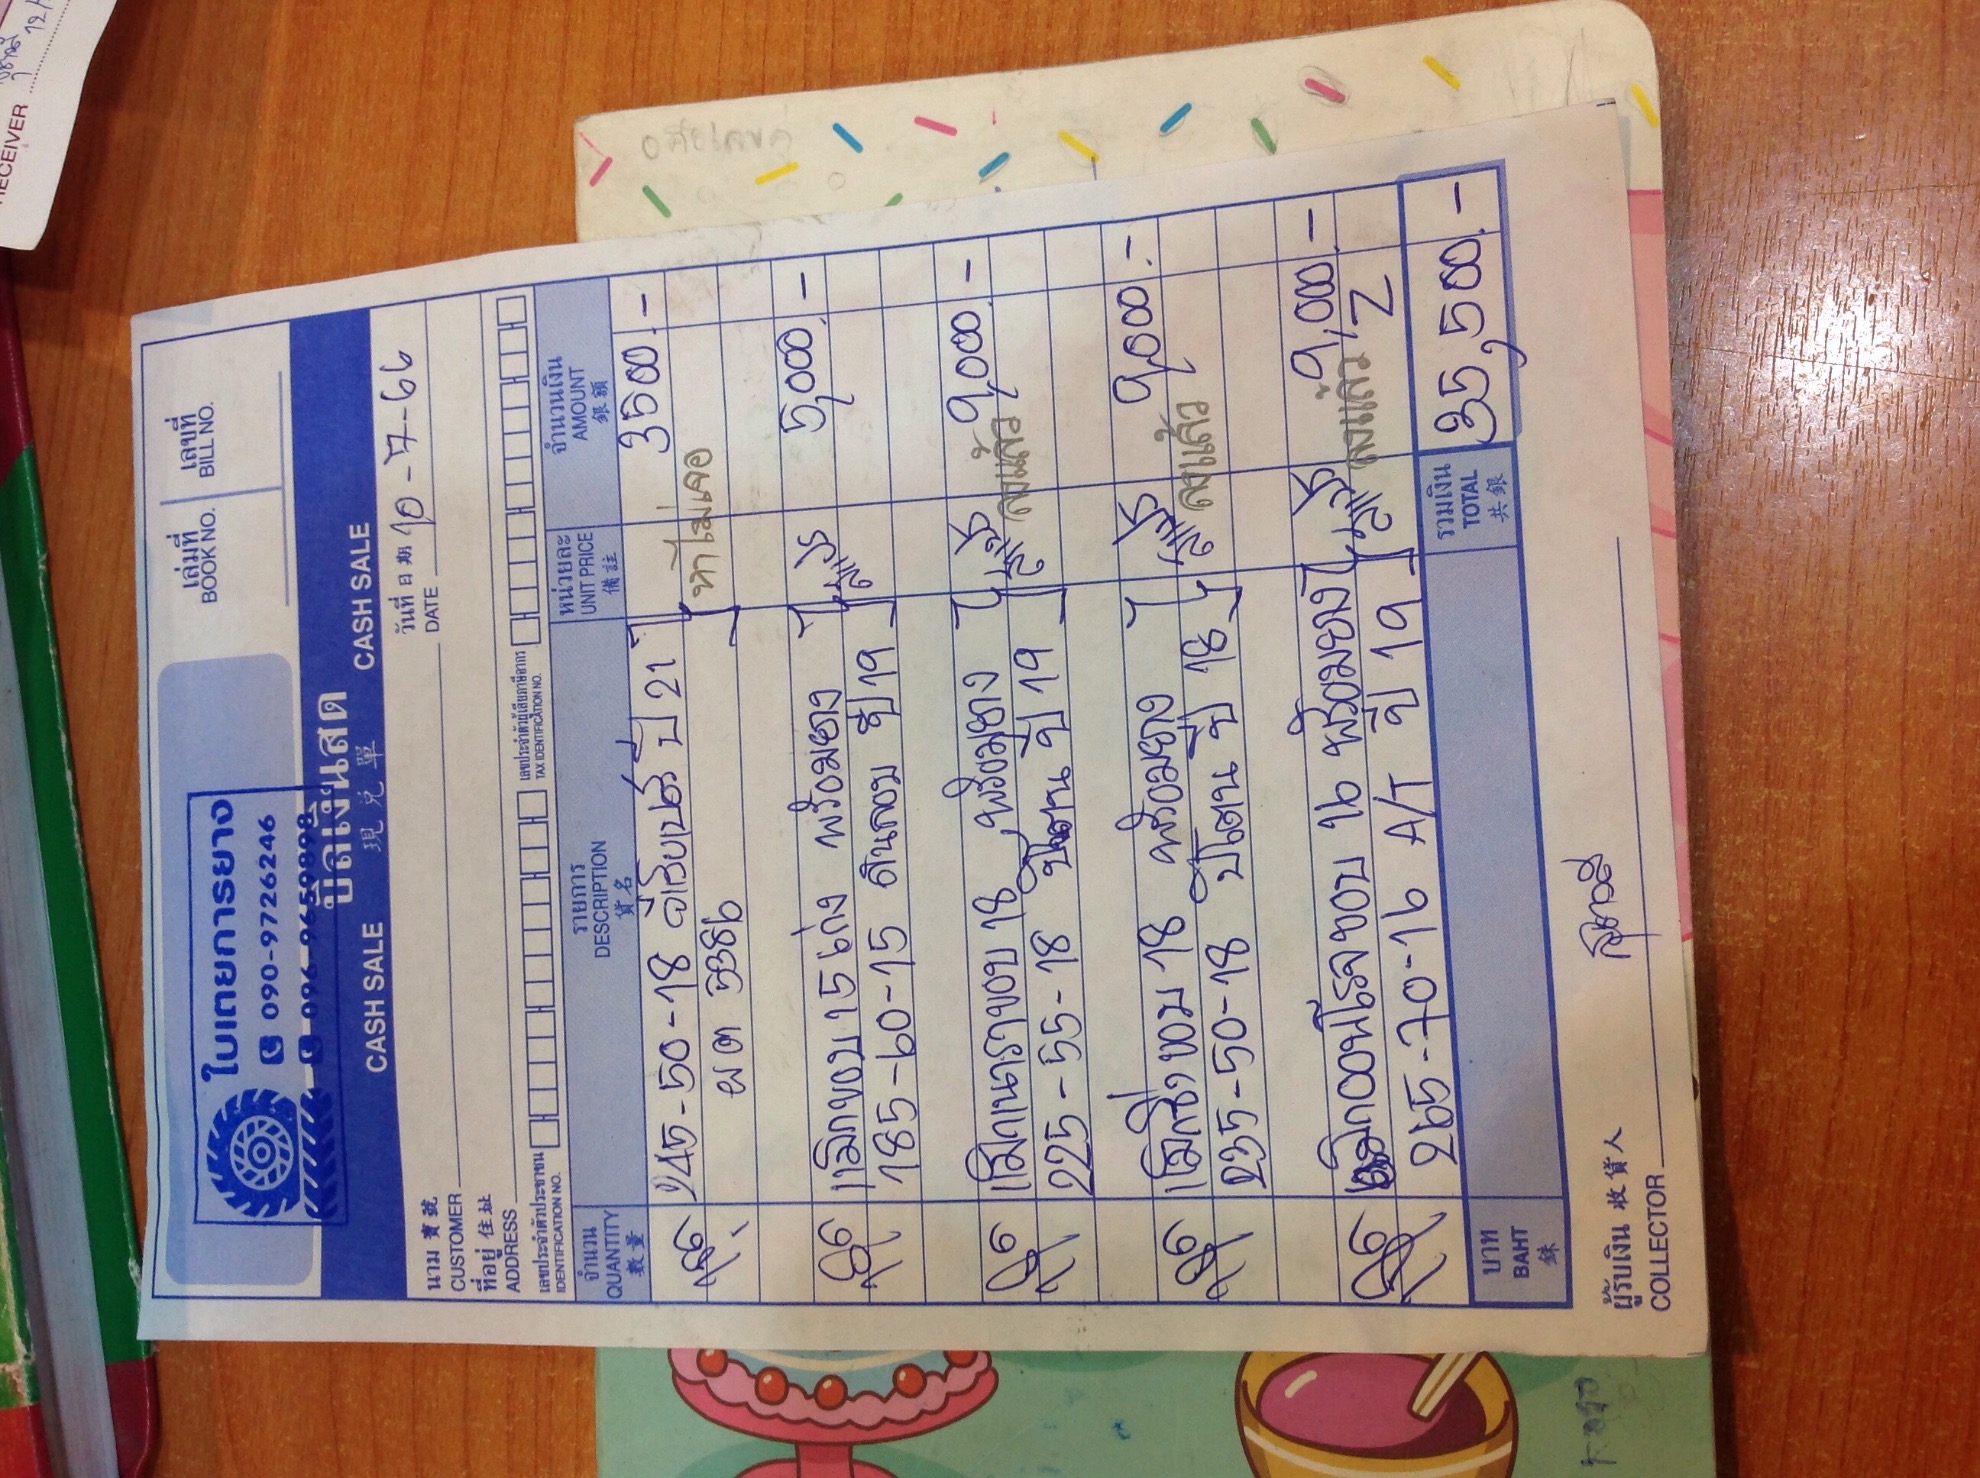 RECEIVER
เล่มที่ เลขที่
BOOK NO. BILL NO.
ใบเตยการยาง
090-9726246
096-9659898
บิลเงินสด
CASH SALE 現兌單 CASH SALE
วันที่ 日期
DATE 10-7-66
นาม 賣號
CUSTOMER
ที่อยู่ 住址
ADDRESS
เลขประจำตัวประชาชน เลขประจำตัวผู้เสียภาษีอากร
IDENTIFICATION NO. TAX IDENTIFICATION NO.
จำนวน รายการ หน่วยละ จำนวนเงิน
QUANTITY DESCRIPTION UNIT PRICE AMOUNT
數量 貨名 備註 銀額
245-50-18 ปี 21 3500.-
ผด 5386 หาไม่เจอ
แม็กขอบ 15 เก๋ง พร้อมยาง 5,000.-
185-60-15 ปี 19
แม็กแนวราขอบ 18 พร้อมยาง 9,000.-
225-55-18 ปี 19 ลงแล้ว
แม็กซิ่งขอบ 18 พร้อมยาง 9,000.-
235-50-18 ปี 18 ลงแล้ว
แม็กออฟโรดขอบ 16 พร้อมยาง 9,000.-
265-70-16 A/T ปี 19 ลงแล้ว Z
บาท รวมเงิน 35,500.-
BAHT TOTAL
銖 共銀
ผู้รับเงิน 收貨人
COLLECTOR